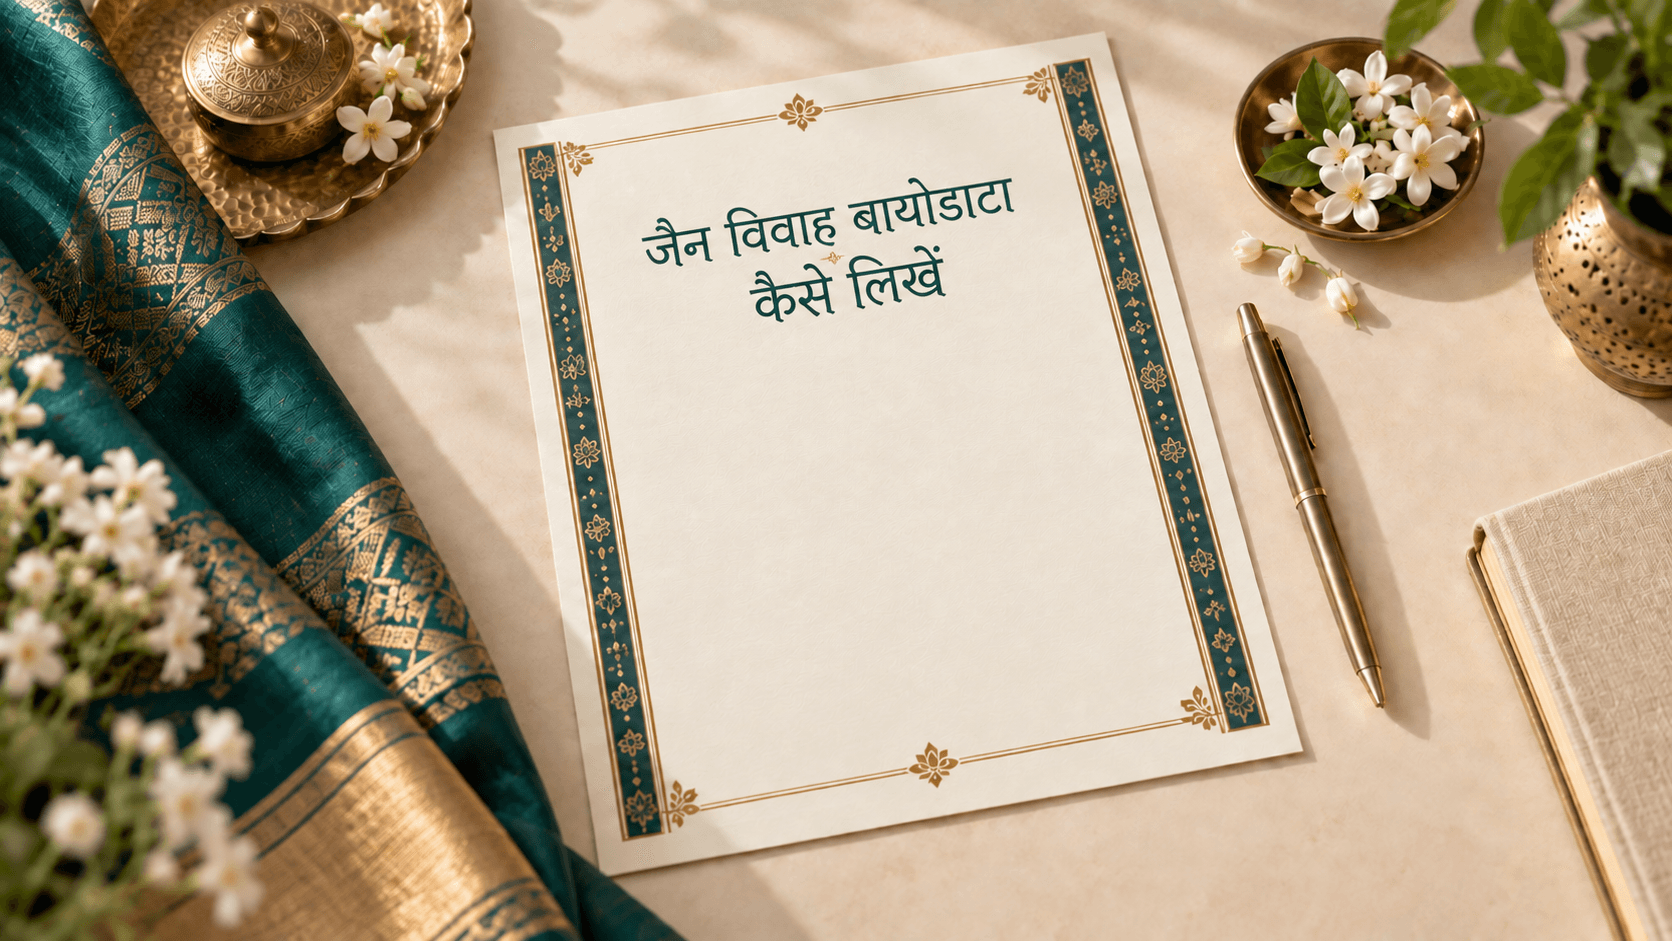 जैन विवाह बायोडाटा
कैसे लिखें